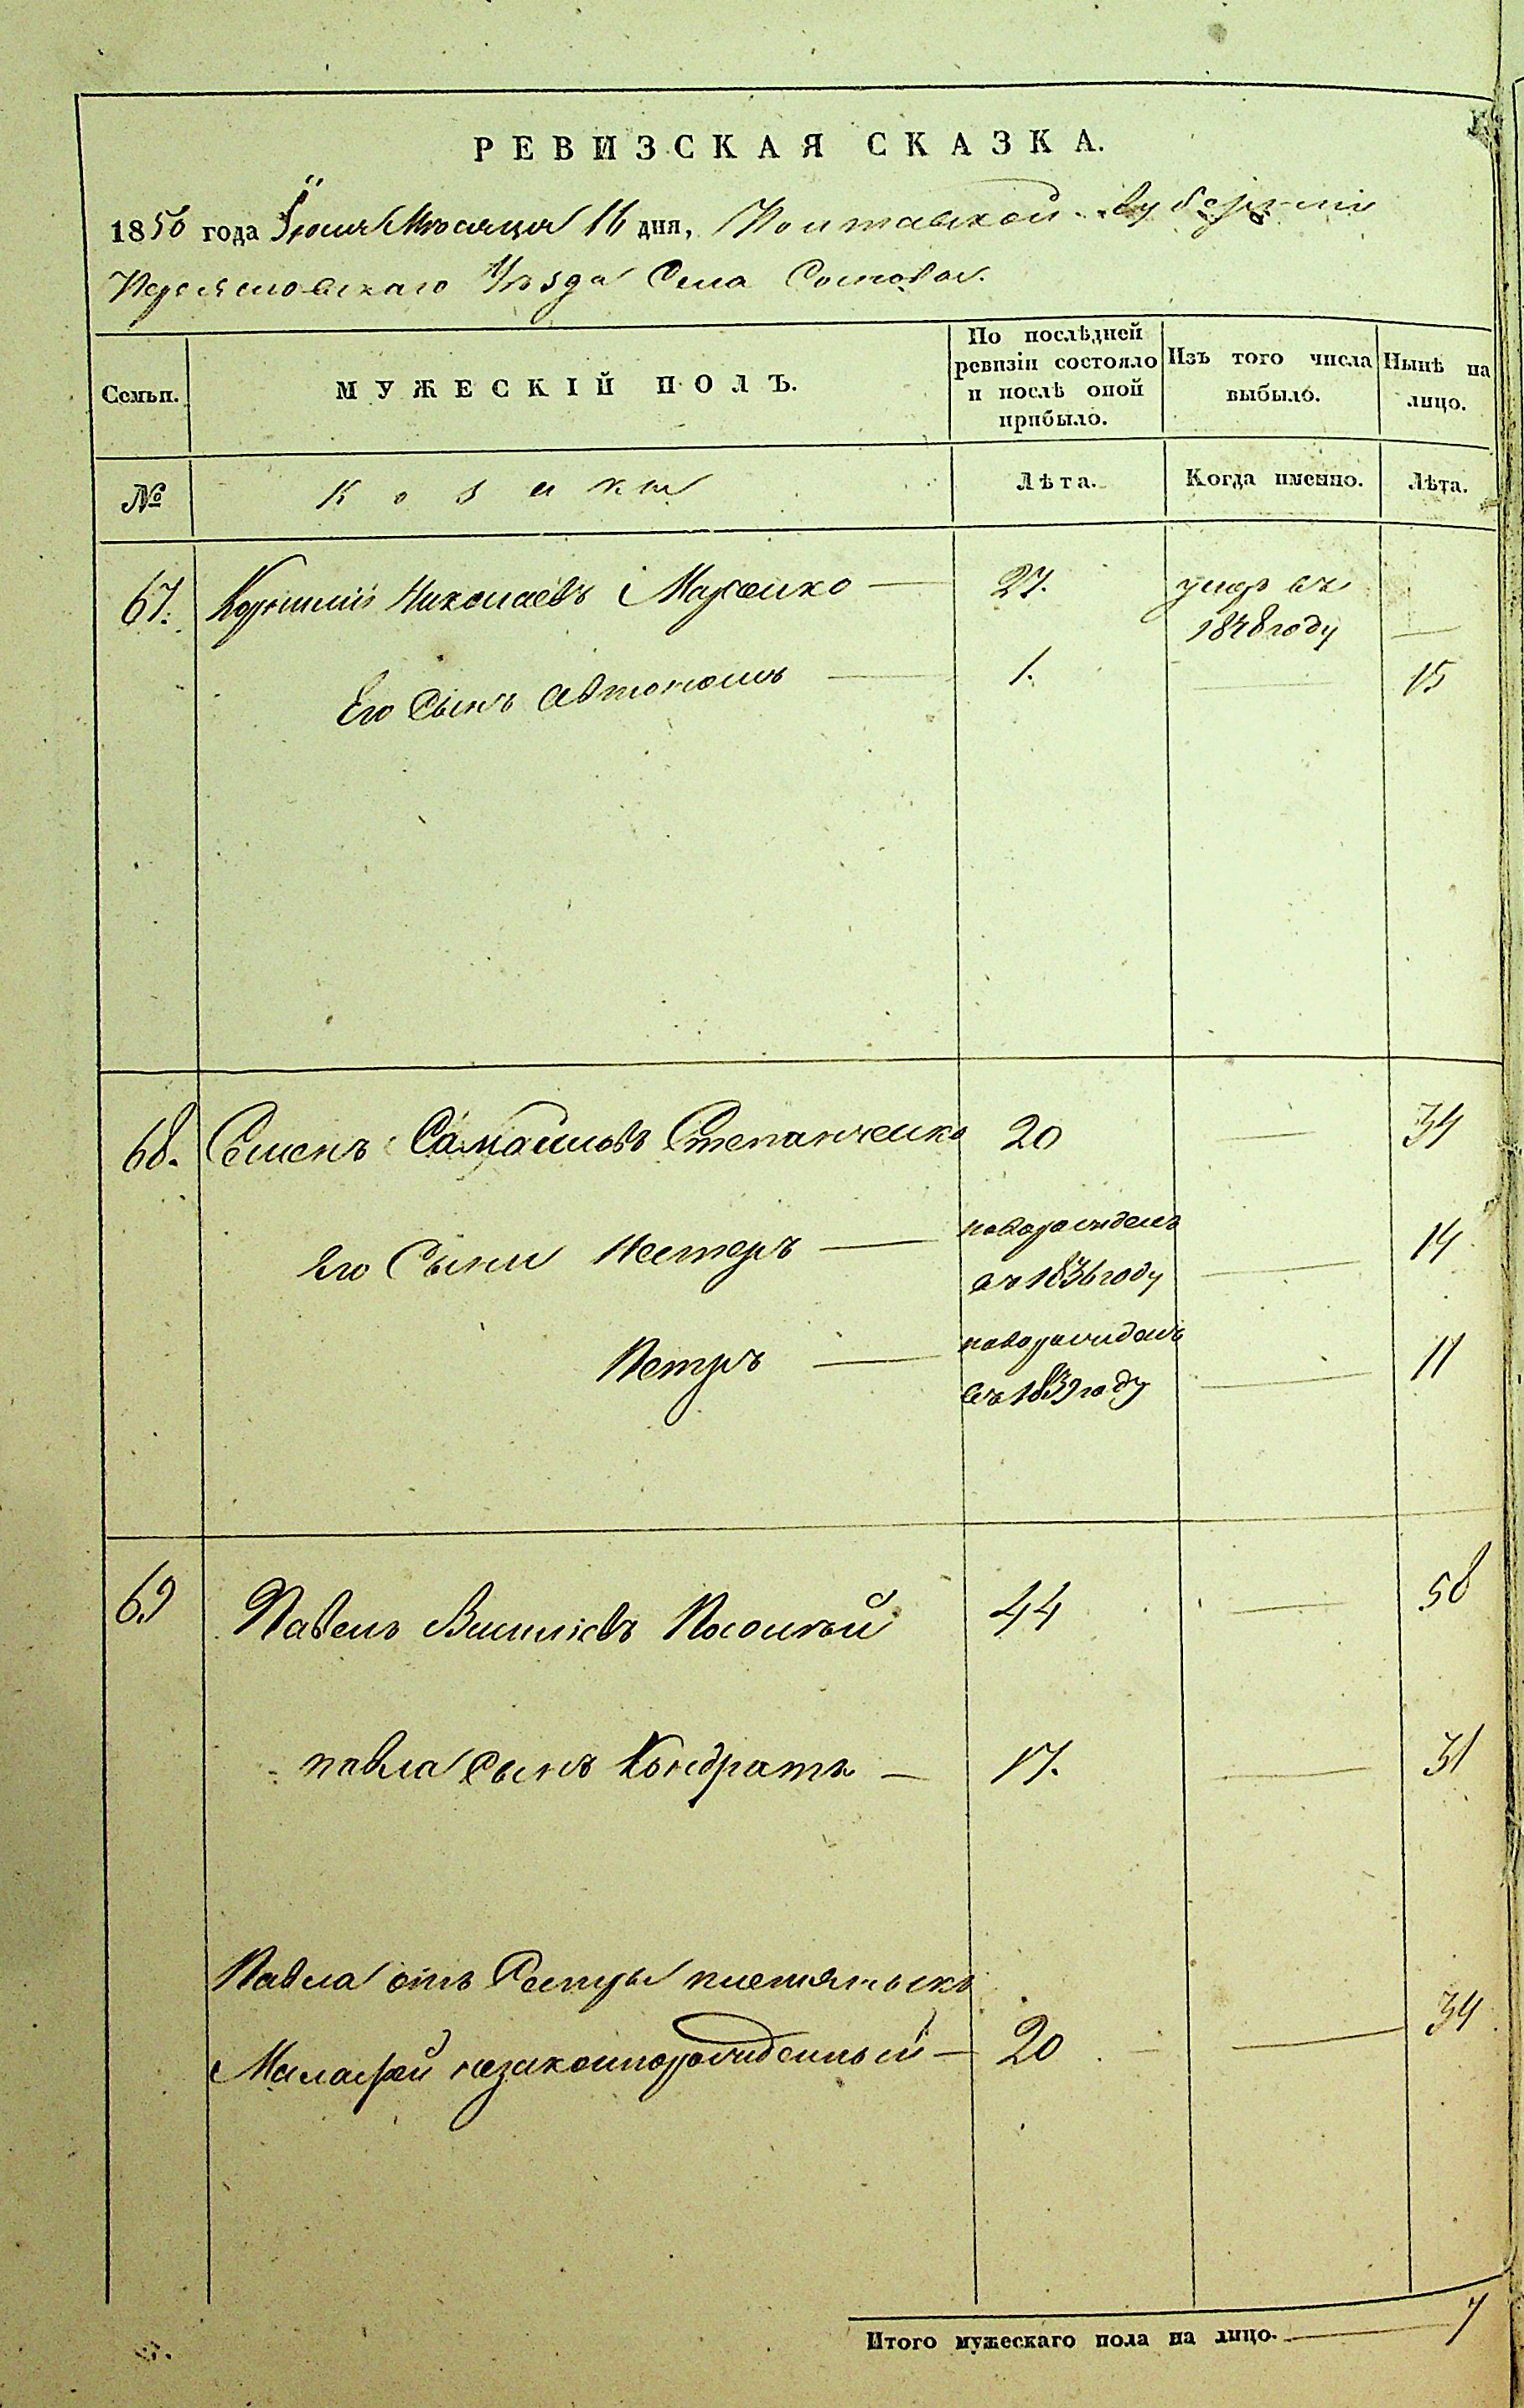 РЕВИЗСКАЯ СКАЗКА.
1850 года Іюня Мѣсяца 16 дня, Полтавской Губерніи
Переяславскаго Уѣзда Села Сомковой
Семьи. МУЖЕСКІЙ ПОЛЪ. По послѣдней ревизіи состояло и послѣ оной прибыло. Изъ того числа выбыло. Нынѣ на лицо.
№ Козаки Лѣта. Когда именно. Лѣта.
67. Корнилій Николаевъ Марченко — 27. умер въ
1848 году —
Его Сынъ Автономъ — 1. — 15
68. Семенъ Самойловъ Степанченко 20 — 34
Его Сыны Нестеръ — новорожденъ
въ 1836 году — 14
Петръ — новорожденъ
въ 1839 году — 11
69 Павелъ Василіевъ 44 — 58
павла сынъ Кондратъ — 17. — 31
Павла отъ Сестры племянникъ
Малафей незаконнорожденный — 20 — 34
Итого мужескаго пола на лицо. — 7